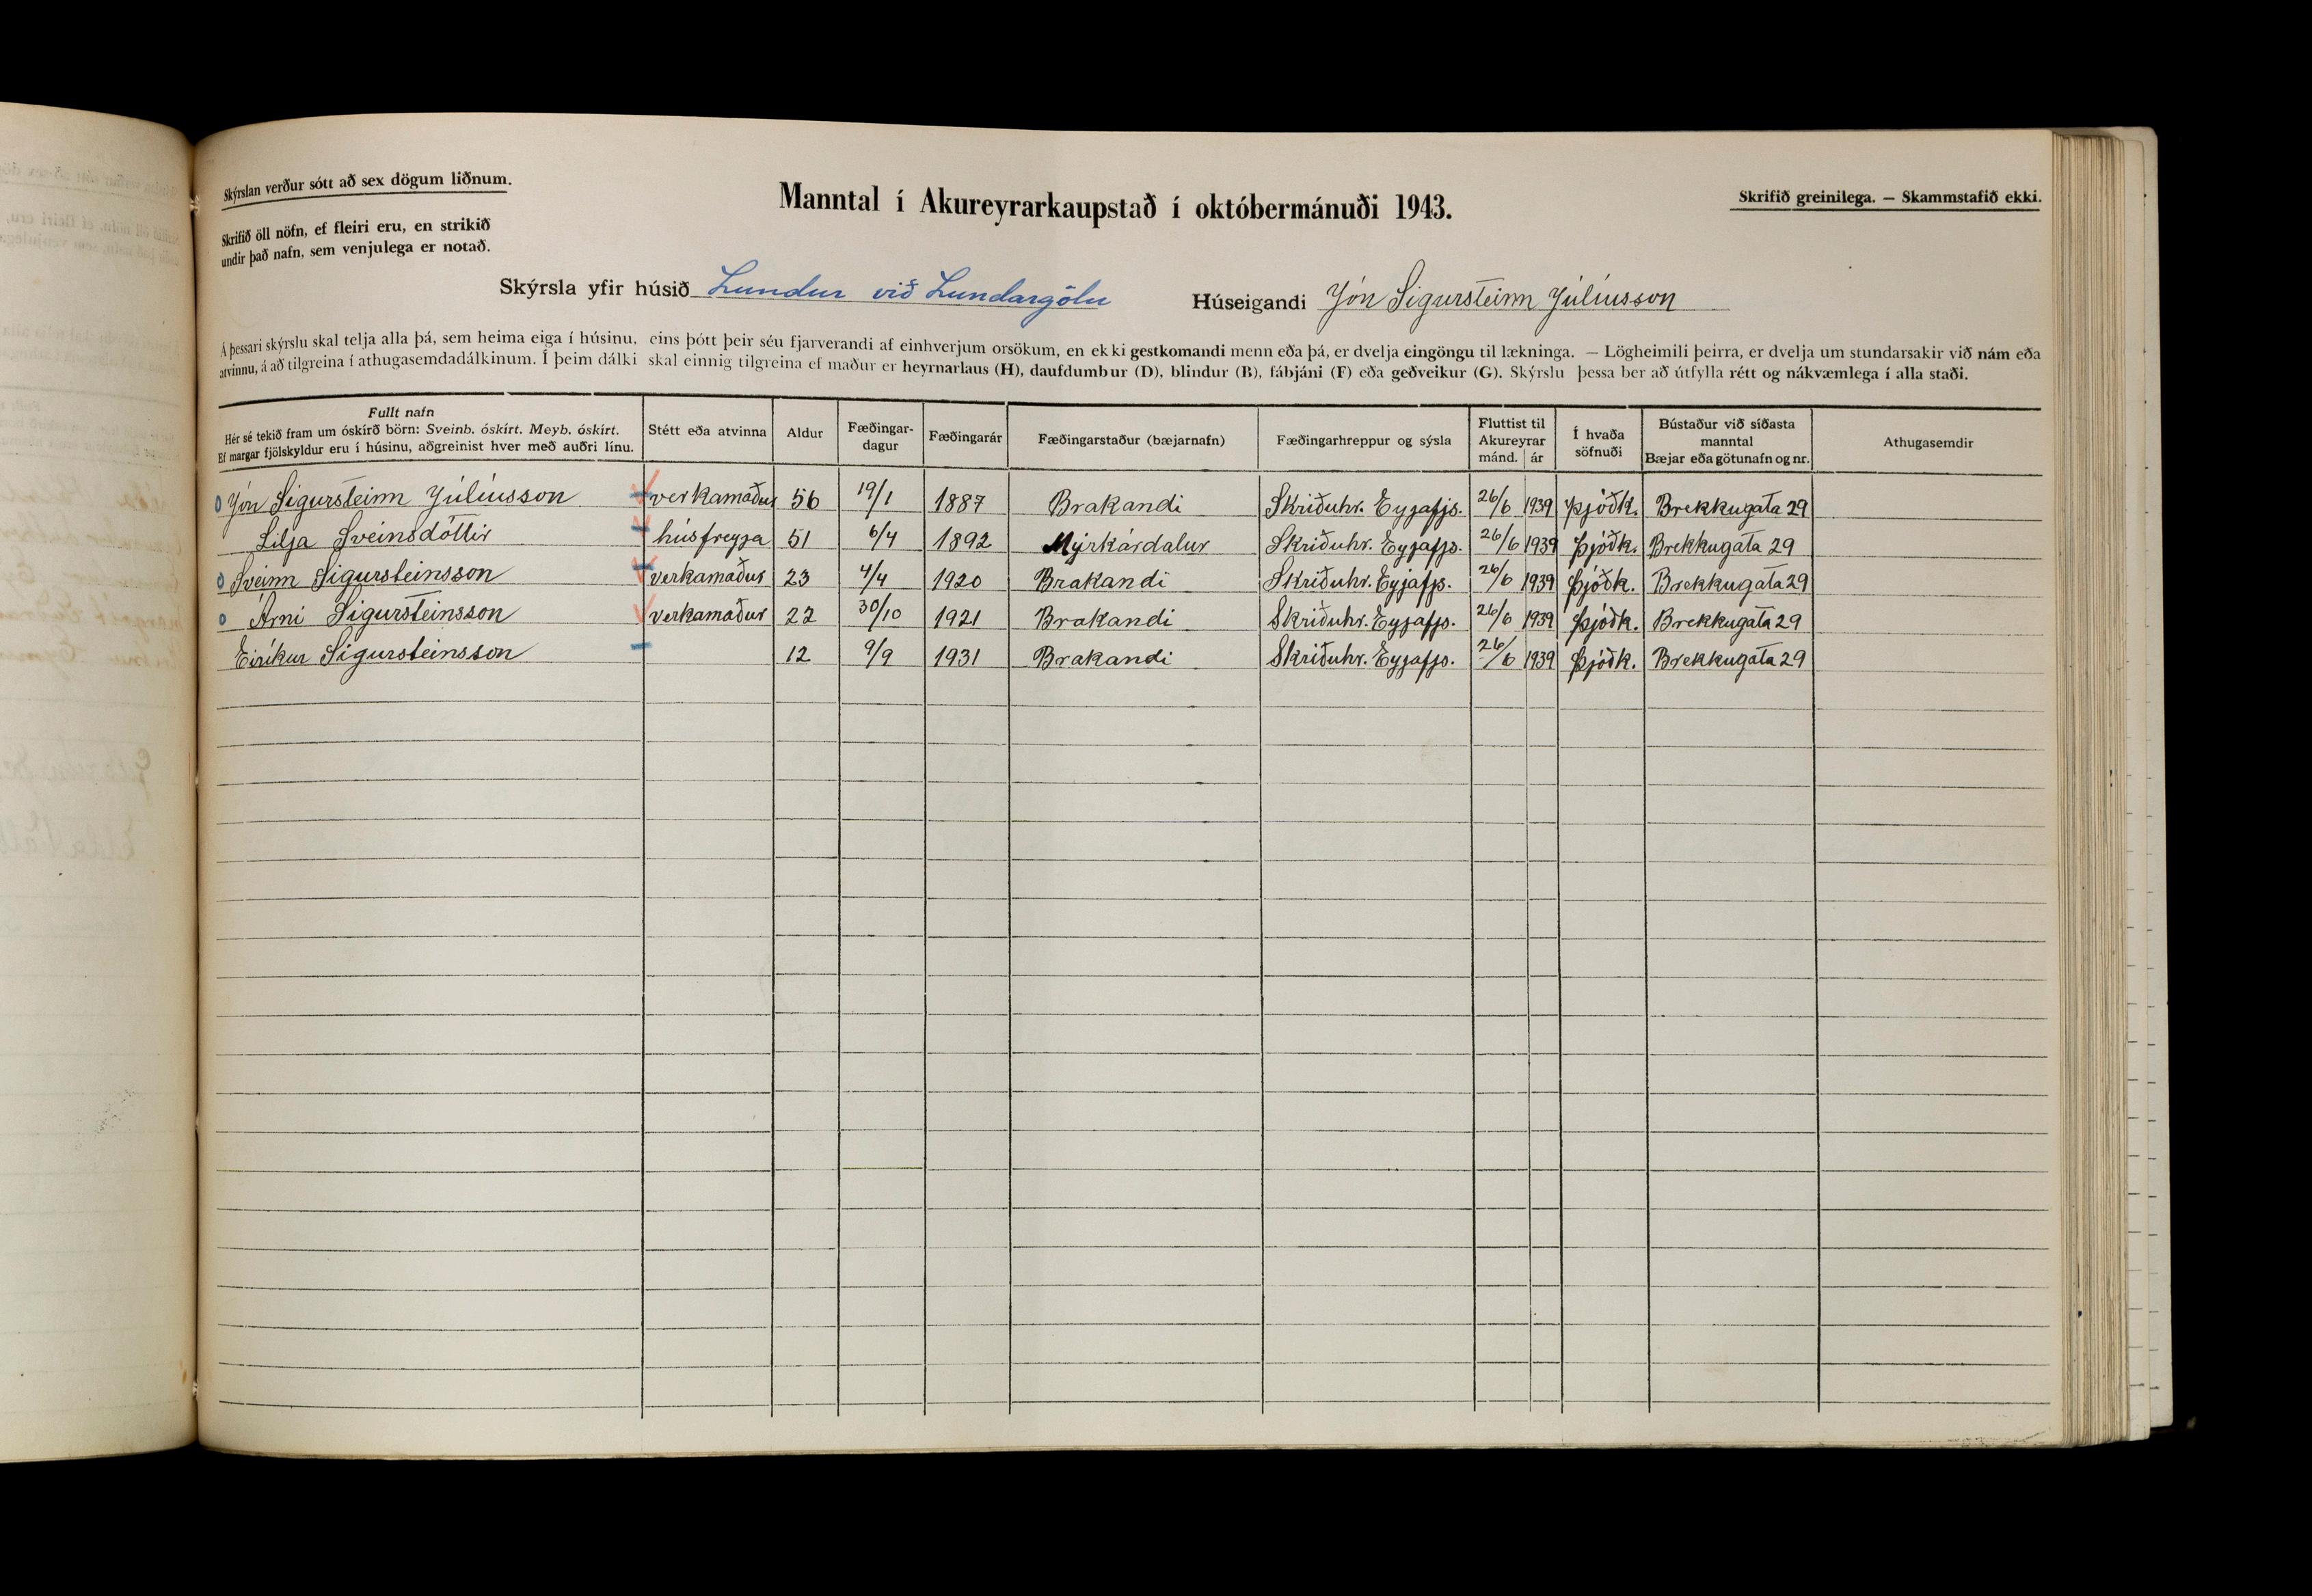 Skýrslan verður sótt að sex dögum liðnum.
Skrifið öll nöfn, ef fleiri eru, en strikið
undir það nafn, sem venjulega er notað.
Manntal í Akureyrarkaupstað í októbermánuði 1943.
Skrifið greinilega. — Skammstafið ekki.
Skýrsla yfir húsið Lundur við Lundargötu Húseigandi Jón Sigursteinn Júlíusson
Á þessari skýrslu skal telja alla þá, sem heima eiga í húsinu, eins þótt þeir séu fjarverandi af einhverjum orsökum, en ekki gestkomandi menn eða þá, er dvelja eingöngu til lækninga. — Lögheimili þeirra, er dvelja um stundarsakir við nám eða
atvinnu, á að tilgreina í athugasemdadálkinum. Í þeim dálki skal einnig tilgreina ef maður er heyrnarlaus (H), daufdumbur (D), blindur (B), fábjáni (F) eða geðveikur (G). Skýrslu þessa ber að útfylla rétt og nákvæmlega í alla staði.
Fullt nafn
Hér sé tekið fram um óskírð börn: Sveinb. óskírt. Meyb. óskírt.
Ef margar fjölskyldur eru í húsinu, aðgreinist hver með auðri línu.
Stétt eða atvinna
Aldur
Fæðingar-
dagur
Fæðingarár
Fæðingarstaður (bæjarnafn)
Fæðingarhreppur og sýsla
Fluttist til
Akureyrar
mánd. ár
Í hvaða
söfnuði
Bústaður við síðasta
manntal
Bæjar eða götunafn og nr.
Athugasemdir
Jón Sigursteinn Júlíusson verkamaður 56 19/1 1887 Brakandi Skriðuhr. Eyjafjs. 26/6 1939 Þjóðk. Brekkugata 29
Lilja Sveinsdóttir húsfreyja 51 6/4 1892 Mýrkárdalur Skriðuhr. Eyjafjs. 26/6 1939 Þjóðk. Brekkugata 29
Sveinn Sigursteinsson verkamaður 23 4/4 1920 Brakandi Skriðuhr. Eyjafjs. 26/6 1939 Þjóðk. Brekkugata 29
Árni Sigursteinsson verkamaður 22 30/10 1921 Brakandi Skriðuhr. Eyjafjs. 26/6 1939 Þjóðk. Brekkugata 29
Eiríkur Sigursteinsson 12 9/9 1931 Brakandi Skriðuhr. Eyjafjs. 26/6 1939 Þjóðk. Brekkugata 29